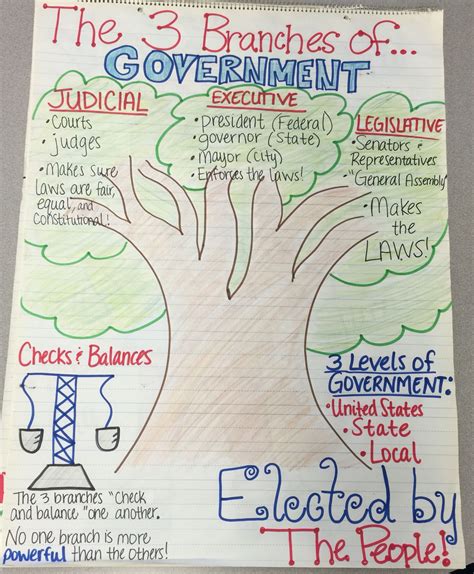 The 3 Branches of...
GOVERNMENT
JUDICIAL
• Courts
• judges
• Makes sure
laws are fair,
equal, and
constitutional!
EXECUTIVE
• president (Federal)
• governor (State)
• Mayor (City)
• Enforces the laws!
LEGISLATIVE
• Senators &
Representatives
• "General Assembly"
• Makes
the
LAWS!
Checks & Balances
The 3 branches "Check
and balance" one another.
No one branch is more
powerful than the others!
3 Levels of
GOVERNMENT:
• United States
• State
• Local
Elected by
The People!